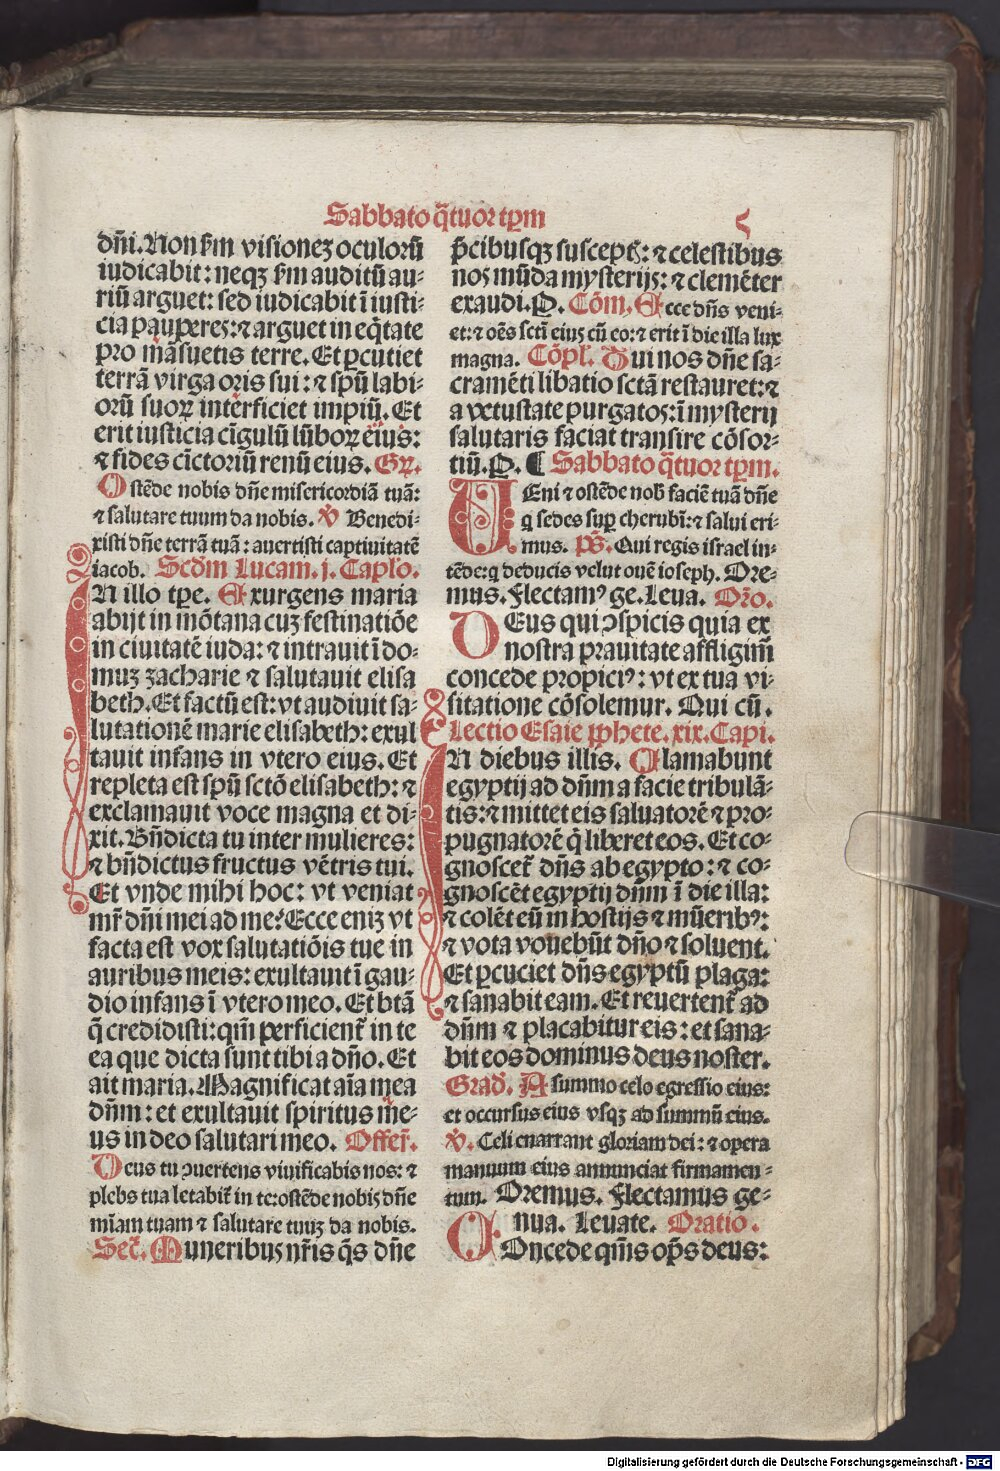 Sabbato q̃tuor tꝑm
5
dñi. Non ẜm visionez oculorū
iudicabit: neqꝫ ẜm auditū au-
riū arguet: sed iudicabit ĩ iusti-
cia pauꝑes: ⁊ arguet in eq̃tate
pro mãsuetis terre. Et ꝑcutiet
terrã virga oris sui: ⁊ spũ labi-
orũ suoꝝ interficiet impiũ. Et
erit iusticia cĩgulũ lũboꝝ eius:
⁊ fides cĩctoriũ renũ eius. Gꝝ.
Ostẽde nobis dñe misericordiã tuã:
⁊ salutare tuum da nobis. ℣ Benedi-
xisti dñe terrã tuã: auertisti captiuitatẽ
iacob. Scďm Lucam. j. Caplo.
IN illo tꝑe. Exurgens maria
abijt in mõtana cuꝫ festinatiõe
in ciuitatẽ iuda: ⁊ intrauit ĩ do-
muꝫ zacharie ⁊ salutauit elisa
beth. Et factũ est: vt audiuit sa-
lutationẽ marie elisabeth: exul
tauit infans in vtero eius. Et
repleta est spũ sctõ elisabeth: ⁊
exclamauit voce magna et di-
xit. Bñdicta tu inter mulieres:
⁊ bñdictus fructus vẽtris tui.
Et vnde mihi hoc: vt veniat
mr̃ dñi mei ad me? Ecce eniꝫ vt
facta est vox salutatiõis tue in
auribus meis: exultauit ĩ gau-
dio infans ĩ vtero meo. Et btã
q̃ credidisti: qm̃ perficient᷑ in te
ea que dicta sunt tibi a dño. Et
ait maria. Magnificat aĩa mea
dñm: et exultauit spiritus me-
us in deo salutari meo. Offer̃.
Deus tu ꝯuertens viuificabis nos: ⁊
plebs tua letabit᷑ in te: ostẽde nobis dñe
miãm tuam ⁊ salutare tuuꝫ da nobis.
Sec̃. Muneribus nr̃is q̃s dñe
p̃cibusqꝫ suscept᷑: ⁊ celestibus
nos mũda mysterijs: ⁊ clemẽter
exaudi. P. Cõm. Ecce dñs veni-
et: ⁊ oẽs scti eius cũ eo: ⁊ erit ĩ die illa lux
magna. Cõpl. Qui nos dñe sa-
cramẽti libatio sctã restauret: ⁊
a vetustate purgatos: ĩ mysterij
salutaris faciat transire cõsor-
tiũ. P. ¶ Sabbato q̃tuor tꝑm.
VEni ⁊ ostẽde nob̃ faciẽ tuã dñe
q sedes suꝑ cherubĩ: ⁊ salui eri-
mus. Ps̃. Qui regis israel in-
tẽde: q deducis velut ouẽ ioseph. Ore-
mus. Flectamꝰ ge. Leua. Orõ.
DEus qui ꝯspicis quia ex
nostra prauitate affligim̃
concede propiciꝰ: vt ex tua vi-
sitatione cõsolemur. Qui cũ.
Lectio Esaie ꝓphete. xix. Capi.
IN diebus illis. Clamabunt
egyptij ad dñm a facie tribulã-
tis: ⁊ mittet eis saluatorẽ ⁊ pro-
pugnatorẽ q̃ liberet eos. Et co-
gnoscet᷑ dñs ab egypto: ⁊ co-
gnoscẽt egyptij dñm ĩ die illa:
⁊ colẽt eũ in hostijs ⁊ mũeribꝰ:
⁊ vota vouebũt dño ⁊ soluent.
Et ꝑcuciet dñs egyptũ plaga:
⁊ sanabit eam. Et reuertent᷑ ad
dñm ⁊ placabitur eis: et sana-
bit eos dominus deus noster.
Grad̃. A summo celo egressio eius:
et occursus eius vsqꝫ ad summũ eius.
℣. Celi enarrant gloriam dei: ⁊ opera
manuum eius annunciat firmamen-
tum. Oremus. Flectamus ge-
nua. Leuate. Oratio.
COncede qm̃s op̃s deus:
Digitalisierung gefördert durch die Deutsche Forschungsgemeinschaft - DFG